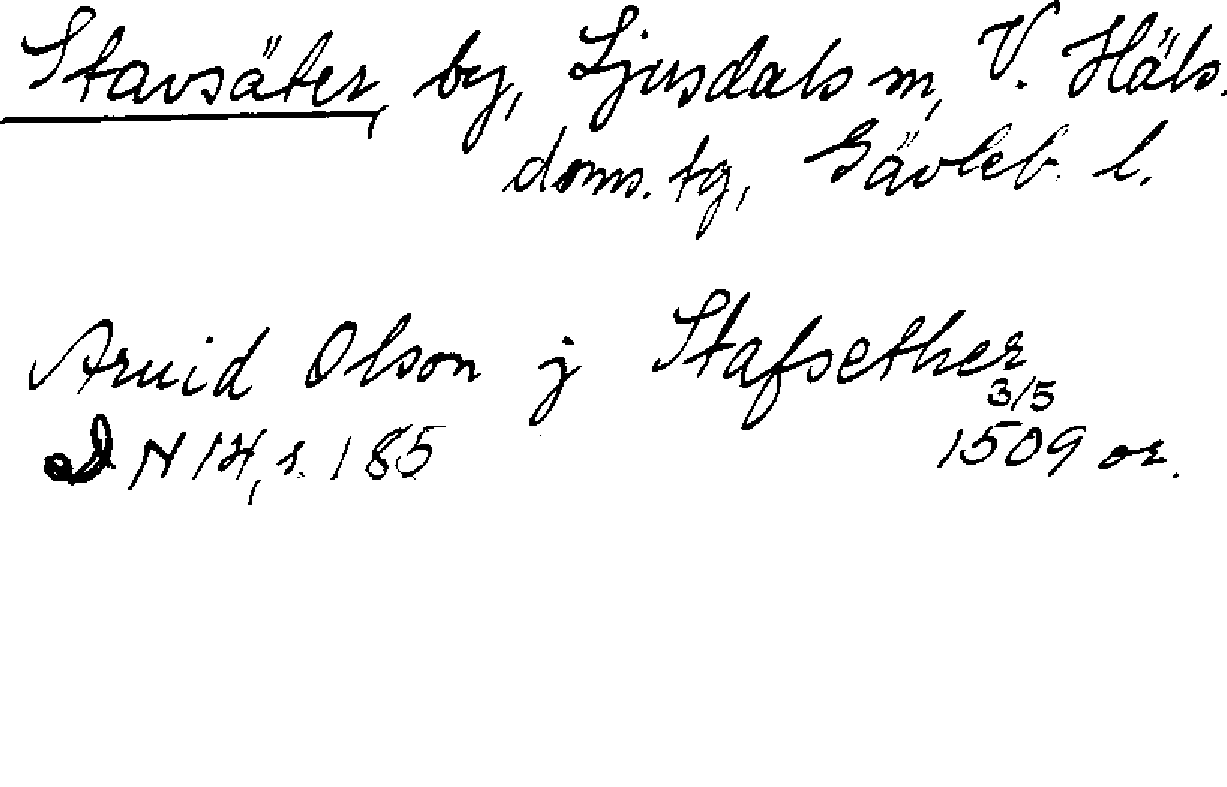 Stavsäter, by, Ljusdals sn, V. Häls.
doms. tg, Gävleb. l.
Aruid Olson j Stafsether
3/5
DN 14, s. 185 1509 or.